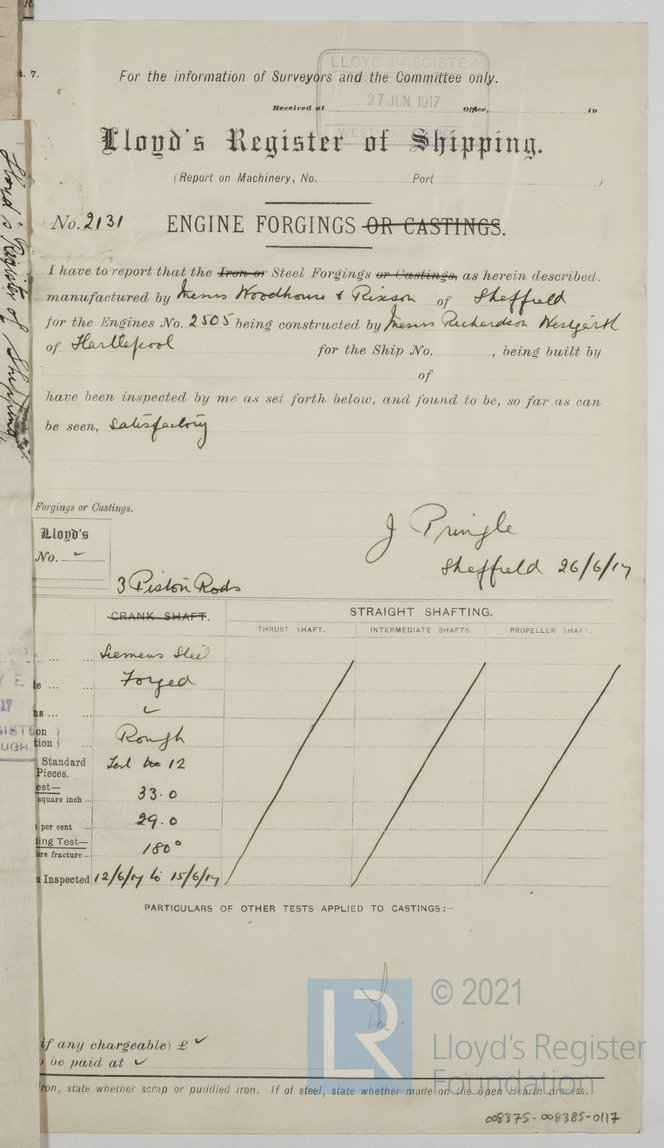 t. 7.
For the information of Surveyors and the Committee only.
LLOYD'S REGISTER
27 JUN 1917
WEST
Received at Office, 19
Lloyd's Register of Shipping.
(Report on Machinery, No. Port )
No. 2131 ENGINE FORGINGS OR CASTINGS.
I have to report that the Iron or Steel Forgings or Castings, as herein described.
manufactured by Messrs Woodhouse & Rixson of Sheffield
for the Engines No. 2505 being constructed by Messrs Richardson Westgarth
of Hartlepool for the Ship No. , being built by
of
have been inspected by me as set forth below, and found to be, so far as can
be seen, satisfactory
Lloyd's Register of Shipping
Forgings or Castings.
Lloyd's
No.
J Pringle
Sheffield 26/6/17
3 Piston Rods
CRANK SHAFT. STRAIGHT SHAFTING.
THRUST SHAFT. INTERMEDIATE SHAFTS. PROPELLER SHAFT.
... ... Siemens Steel
... ... Forged
Rough
Standard Pieces. 12
est— square inch ... 33.0
per cent ... 29.0
ing Test— ore fracture ... 180°
Inspected 12/6/17 to 15/6/17
PARTICULARS OF OTHER TESTS APPLIED TO CASTINGS:—
if any chargeable) £
be paid at
iron, state whether scrap or puddled iron. If of steel, state whether made on the Open Hearth process.
LR
© 2021
Lloyd's Register
Foundation
008375-008385-0117